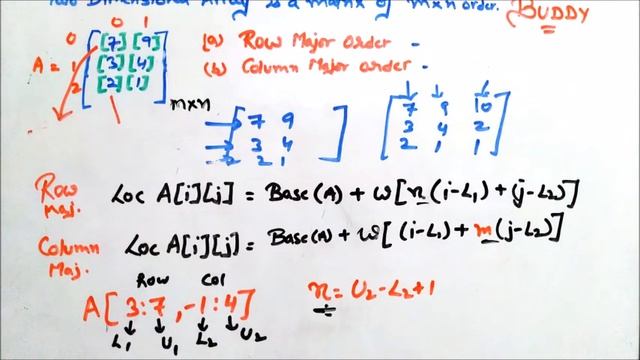 Two Dimensional Array is a matrix of m×n order. BUDDY
0 1
A = 0 [7] [9]
1 [3] [4]
2 [2] [1]
m×n
(a) Row Major Order -
(b) Column Major order -
7 9
3 4
2 1
7 9 10
3 4 2
2 1 1
Row Maj. Loc A[i][j] = Base(A) + w[n(i-L1) + (j-L2)]
Column Maj. Loc A[i][j] = Base(A) + w[(i-L1) + m(j-L2)]
Row Col
A[3:7, -1:4] n = U2-L2+1
L1 U1 L2 U2